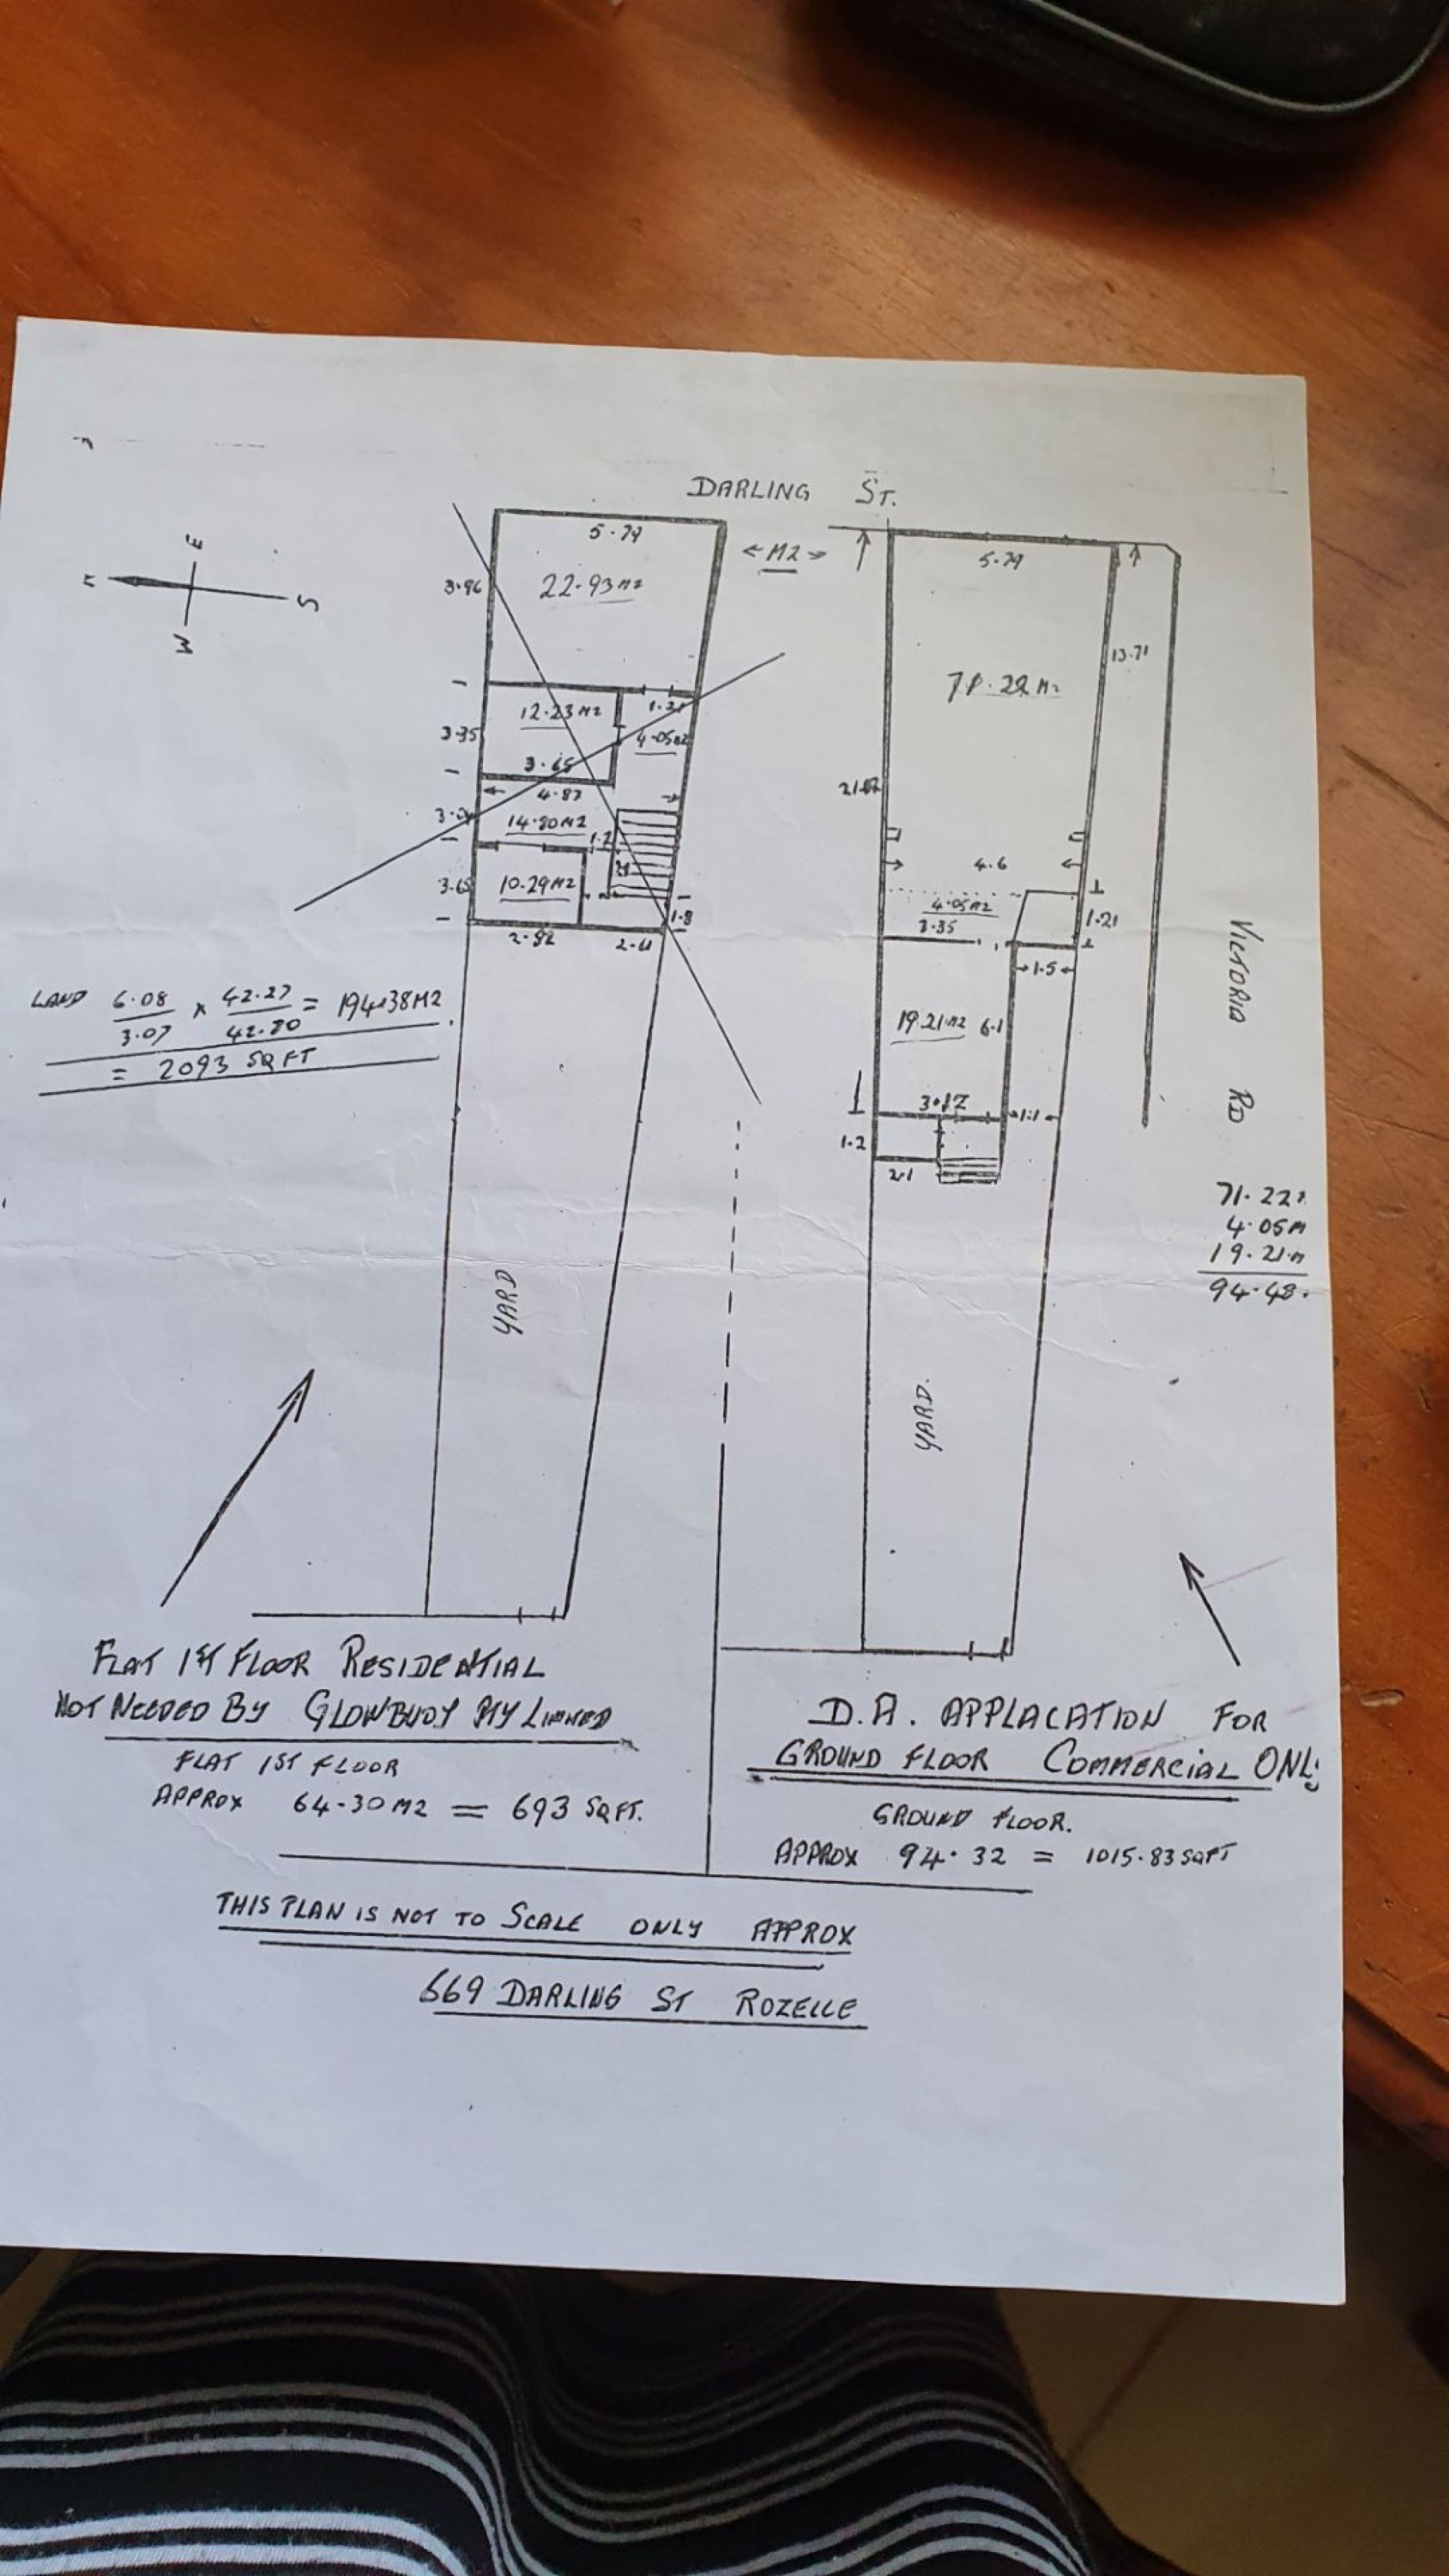 DARLING ST.
E
N
S
W
5.79
3.96
22.93 M2
< M2 >
12.23 M2
1.21
3.35
4.05 M2
3.65
4.87
14.80 M2
1.2
3.65
10.29 M2
1.8
2.82
LAND 6.08 / 3.07 x 42.27 / 42.80 = 194.38 M2
= 2093 SQ FT
YARD
5.79
13.71
M2
4.6
4.05 M2
3.35
1.21
1.5
19.21 M2
6.1
1.1
1.2
2.1
YARD.
VICTORIA RD
71.22
4.05 M
19.21 M
94.48.
FLAT 1ST FLOOR RESIDENTIAL
NOT NEEDED BY GLOWBUOY PTY LIMITED
FLAT 1ST FLOOR
APPROX 64.30 M2 = 693 SQ FT.
D.A. APPLACATION FOR
GROUND FLOOR COMMERCIAL ONL
GROUND FLOOR.
APPROX 94.32 = 1015.83 SQ FT
THIS PLAN IS NOT TO SCALE ONLY APPROX
669 DARLING ST ROZELLE